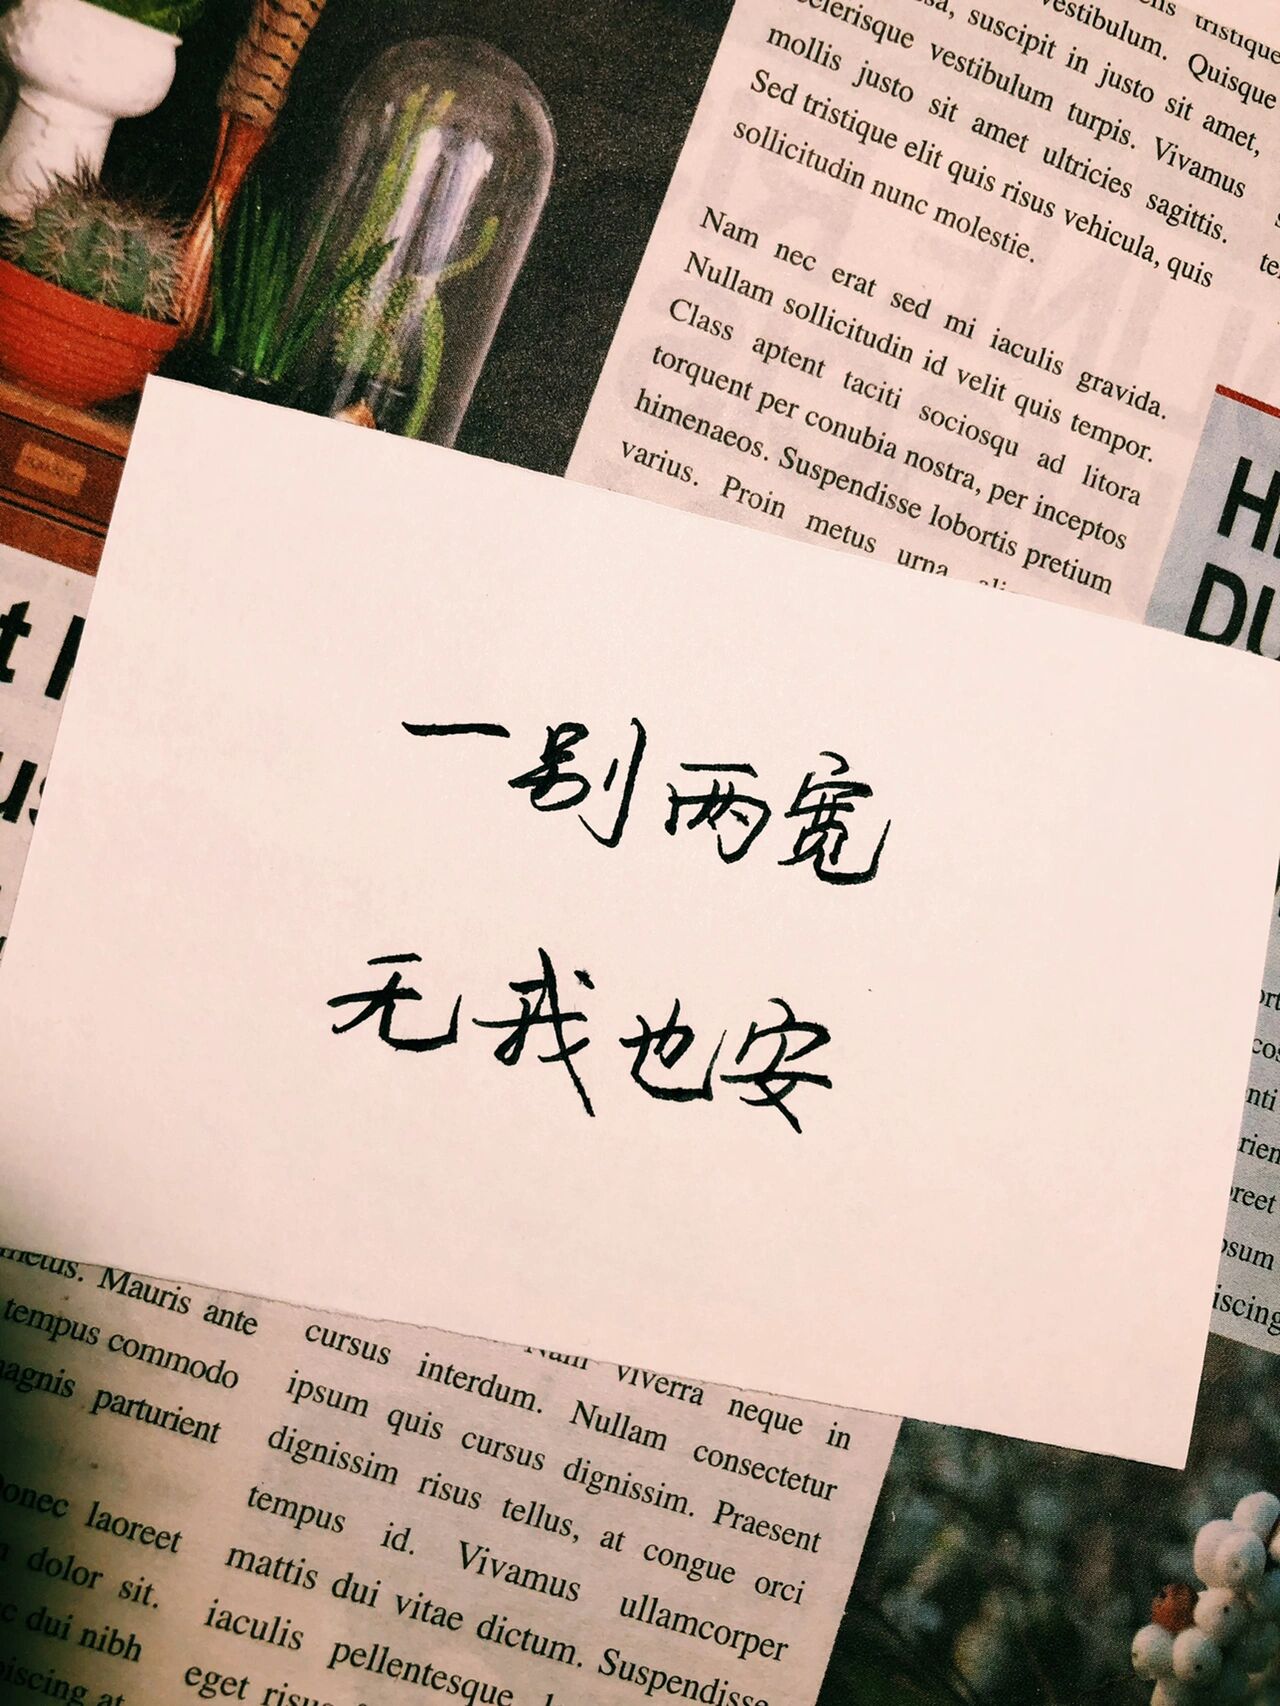 tristique
sa, suscipit in justo sit amet,
vestibulum. Quisque
scelerisque vestibulum turpis. Vivamus
mollis justo sit amet ultricies sagittis.
Sed tristique elit quis risus vehicula, quis
sollicitudin nunc molestie.
Nam nec erat sed mi iaculis gravida.
Nullam sollicitudin id velit quis tempor.
Class aptent taciti sociosqu ad litora
torquent per conubia nostra, per inceptos
himenaeos. Suspendisse lobortis pretium
varius. Proin metus urna
DU
一别两宽
无我也安
metus. Mauris ante
tempus commodo
magnis parturient
Donec laoreet
dolor sit.
dui nibh
at
Nam viverra neque in
cursus interdum. Nullam consectetur
ipsum quis cursus dignissim. Praesent
dignissim risus tellus, at congue orci
tempus id. Vivamus ullamcorper
mattis dui vitae dictum. Suspendisse
iaculis pellentesque
eget risus